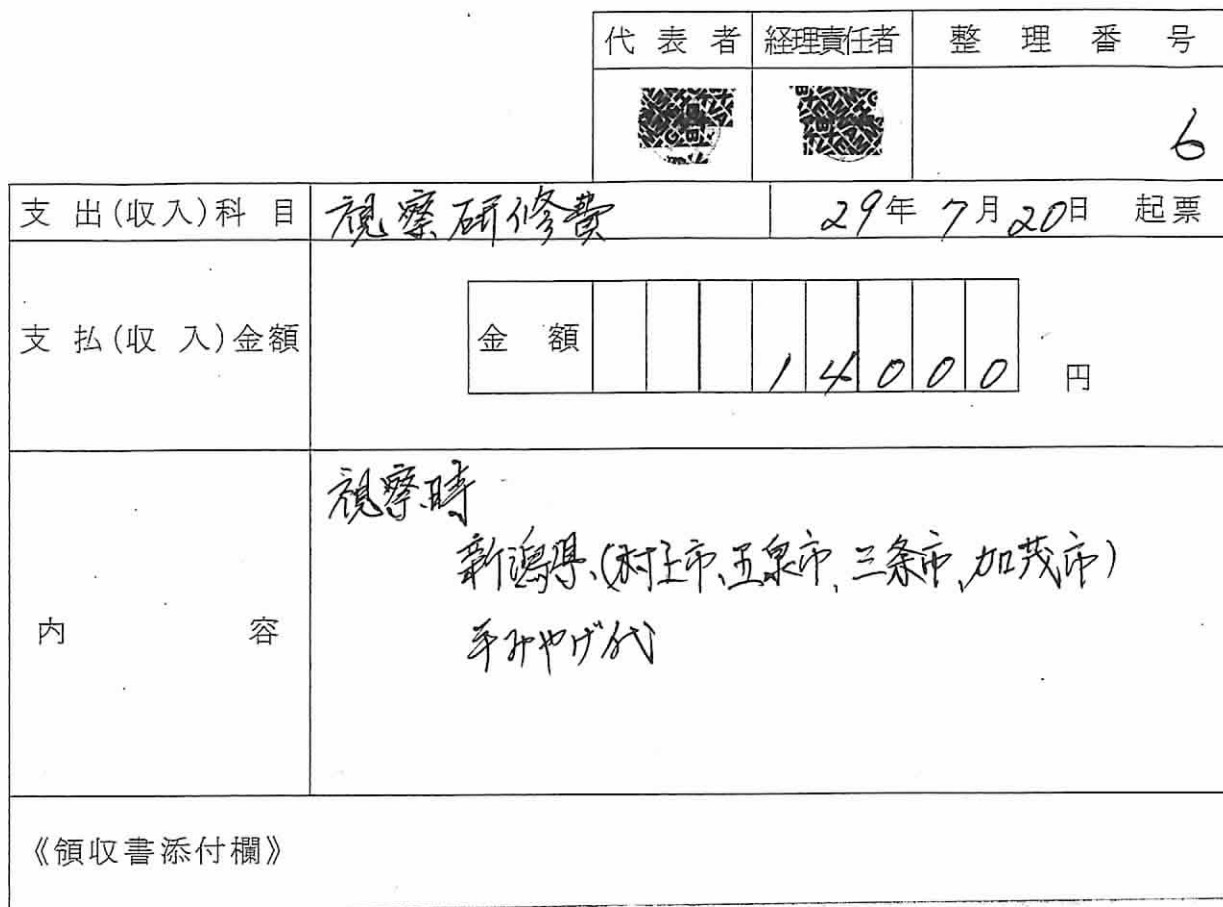 代表者 経理責任者 整理番号
6
支出(収入)科目 視察研修費 29年7月20日 起票
支払(収入)金額 金額 14000 円
視察時
新潟県、(村上市、五泉市、三条市、加茂市)
内容 手みやげ代
《領収書添付欄》